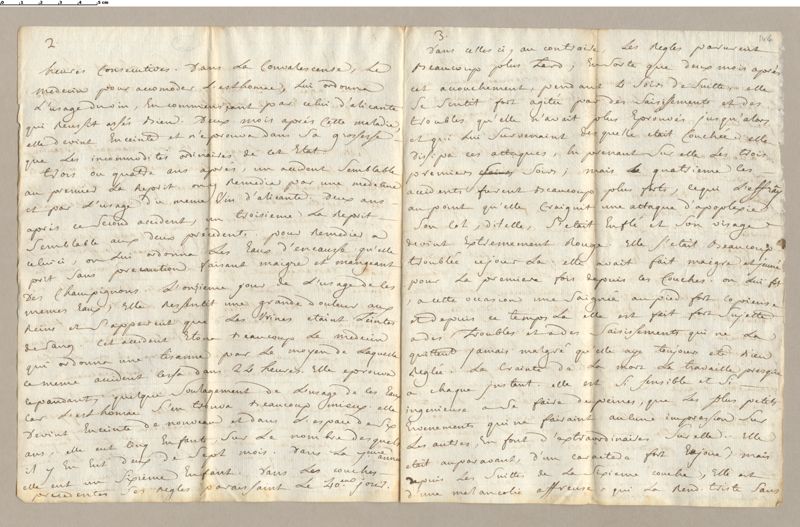 2.
heures Consecutives. Dans La Convalescense, Le
Medecin pour accomoder L'esthomac, Lui ordonna
L'usage du vin, En commençant par celui d'alicante
qui Reussit assés Bien. Deux mois aprés Cette maladie,
elle devint Enceinte et n'eprouva dans sa grossesse
que Les incommodités ordinaires de cet Etat.
trois ou quatre ans aprés, un accident Semblable
au premier La Reprit. on y Remedia par une medecine
et par L'usage du meme Vin d'alicante. Deux ans
aprés ce Second accident, un troisieme La Reprit
Semblable aux deux précédents. pour Remedier a
celui ci, on Lui ordonna Les Eaux d'encausse qu'elle
prit Sans precaution faisant maigre et mangeant
Des Champignons. L'onzieme jour de L'usage de les
memes Eaux, Elle Ressentit une grande douleur aux
Reins et S'apperçut que Les Urines etaint teintes
de Sang. Cet accident Etona Beaucoup Le medecin
qui ordonna une tisanne par Le moyen de Laquelle
ce meme accident cessa dans 24 heures. Elle eprouva
cepandant, quelque Soulagement de L'usage de les Eaux
car L'esthomac S'en trouva Beaucoup mieux. elle
Devint Enceinte de nouveau et dans L'espace de Six
ans, elle eut Cinq Enfants, Sur Le nombre desquels
il y En Eut deux de Sept mois. Dans La
elle eut un Sixieme Enfant. Dans Les couches
precedentes Ses Regles paraissaint Le 40.eme jour.
3.
144
Dans celles ci, au contraire, Les Regles parurent
Beaucoup plus tard, En Sorte que deux mois aprés
cet acouchement, pendant 4 Soirs de Suitte, elle
Se Sentit fort agitée par des Saisissements et des
troubles qu'elle n'avait plus Eprouvés jusqu'alors
et qui Lui Survenaint des qu'elle etait Couchée. elle
Dissipa ces attaques, En prenant Sur elle Les trois
premiers Soirs, mais Le quatrieme les
accidents furent Beaucoup plus forts, ce qui L'effraya
au point qu'elle Craignit une attaque d'apoplexie.
Son Col, dit elle, S'etait Enflé et Son visage
devint Extremement Rouge. Elle S'etait Beaucoup
troublée ce jour La. elle avait fait maigre et jeuné
pour La premiere fois depuis les Couches. on Lui fit
a cette occasion une Saignée au pied fort copieuse
et depuis ce temps La elle est fort Sujette
a des troubles et a des Saisissements qui ne La
quittent jamais malgré qu'elle aye toujour eté Bien
Reglée. La Crainte de La mort La travaille presque
a chaque instant. elle est Si Sensible et Si
ingenieuse a Se faire de peines, que Les plus petits
Evenements qui ne fairaint aucune impression Sur
Les autres, En font d'extraordinaires Sur elle. Elle
etait auparavant d'un caractere fort Enjoué, mais
depuis Les Suittes de La Sixieme couche, Elle est
d'une melancolie affreuse qui La Rend triste Sans